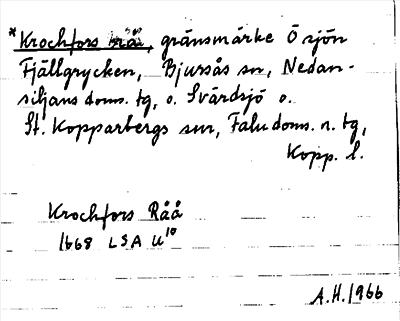 *Krochfors råå, gränsmärke Ö sjön
Fjällgrycken, Bjursås sn, Nedan-
siljans doms. tg, o. Svärdsjö o.
St. Kopparbergs snr, Falu doms. n. tg,
Kopp. l.
Krochfors Råå
1668 LSA U¹⁰
A.H. 1966